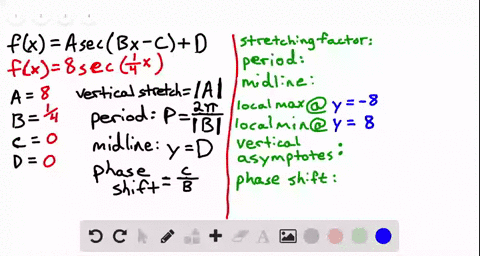 f(x) = A sec(Bx - C) + D
f(x) = 8 sec(1/4 x)
A = 8
B = 1/4
C = 0
D = 0
vertical stretch = |A|
period: P = 2π/|B|
midline: y = D
phase shift = C/B
stretching factor:
period:
midline:
local max @ y = -8
local min @ y = 8
vertical
asymptotes:
phase shift:
A